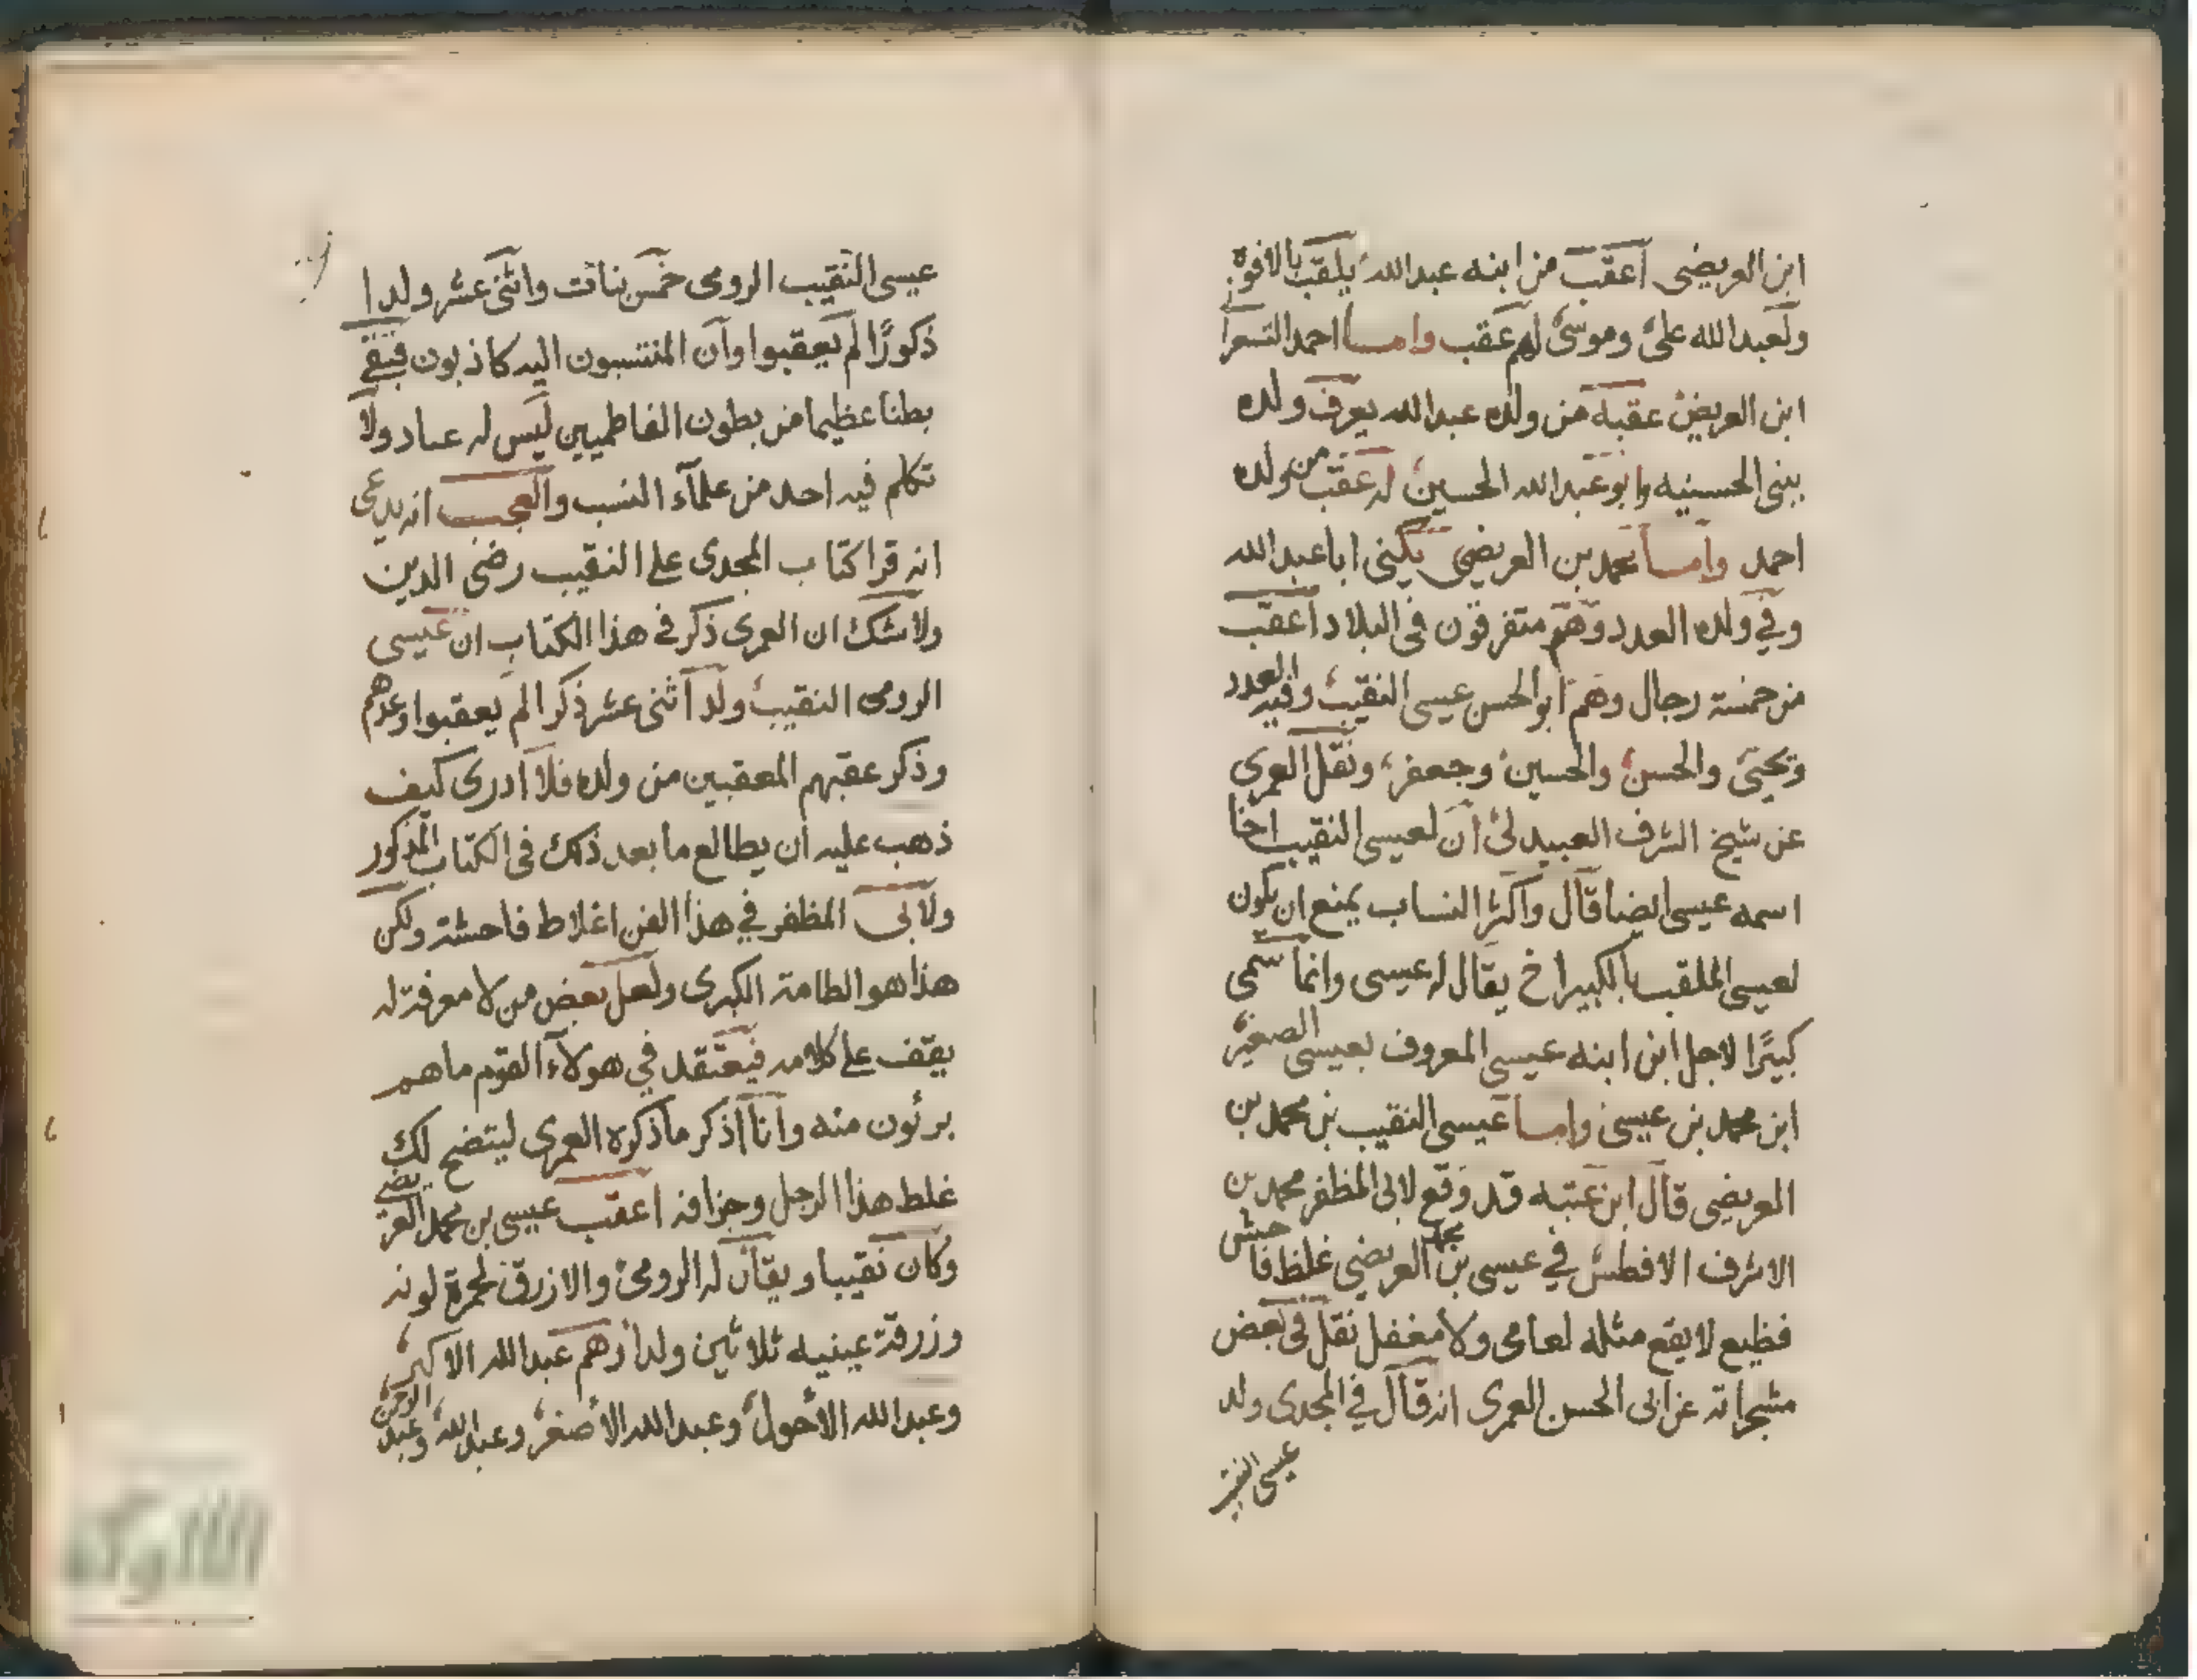 ابن العريضى أعقب من ابنه عبدالله يلقب بالافوه
ولعبدالله على وموسى لهم عقب واما احمد الشعرا
ابن العريض عقبه من ولده عبدالله يعرف ولده
ببنى الحسنيه وابو عبدالله الحسين له عقب من ولده
احمد واما محمد بن العريضى يكنى اباعبدالله
وفى ولده العدد وهم متفرقون فى البلاد أعقب
من خمسة رجال وهم ابوالحسن عيسى النقيب وفيه العدد
ويحيى والحسن والحسين وجعفر ونقل العمرى
عن شيخ الشرف العبيدلى أن لعيسى النقيب اخا
اسمه عيسى ايضا قال واكثر النساب يمنع ان يكون
لعيسى الملقب بالكبير اخ يقال له عيسى وانما سمى
كبيرًا لاجل ابن ابنه عيسى المعروف بعيسى الصغير
ابن محمد بن عيسى واما عيسى النقيب بن محمد بن
العريضى قال ابن عتبه قد وقع لابى المظفر محمد بن
الاشرف الافطسى في عيسى بن محمد العريضى غلط فاحش
فظيع لا يقع مثله لعامى ولا مغفل نقل فى بعض
مشجراته عن ابى الحسن العمرى انه قال في المجدى ولد
عيسى النقيب
عيسى النقيب الرومى خمس بنات واثنى عشر ولدا
ذكورًا لم يعقبوا وأن المنتسبون اليه كاذبون فبقى
بطنا عظيما من بطون الفاطميين ليس له عماد ولا
تكلم فيه احد من علمآء النسب والعجب انه يدعى
انه قرا كتاب المجدى على النقيب رضى الدين
ولا شك ان العمرى ذكر في هذا الكتاب ان عيسى
الرومى النقيب ولد أثنى عشر ذكرا لم يعقبوا وعدهم
وذكر عقبهم المعقبين من ولده فلا أدرى كيف
ذهب عليه ان يطالع ما بعد ذلك فى الكتاب المذكور
ولابى المظفر في هذا الفن اغلاط فاحشة ولكن
هذا هو الطامة الكبرى ولعل بعض من لا معرفة له
يقف على كلامه فيعتقد في هولآء القوم ما هم
برئون منه وأنا أذكر ما ذكره العمرى ليتضح لك
غلط هذا الرجل وجزافه اعقب عيسى بن محمد العريضى
وكان نقيبا ويقال له الرومى والازرق لحمرة لونه
وزرقة عينيه ثلاثين ولدا وهم عبدالله الاكبر
وعبدالله الأحول وعبدالله الأصغر وعبدالله وعبد الرحمن